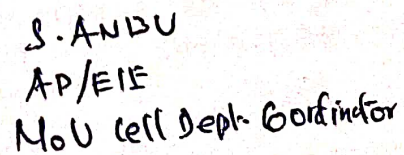 S. ANBU
AP/EIE
MoU Cell Dept. Cordinator